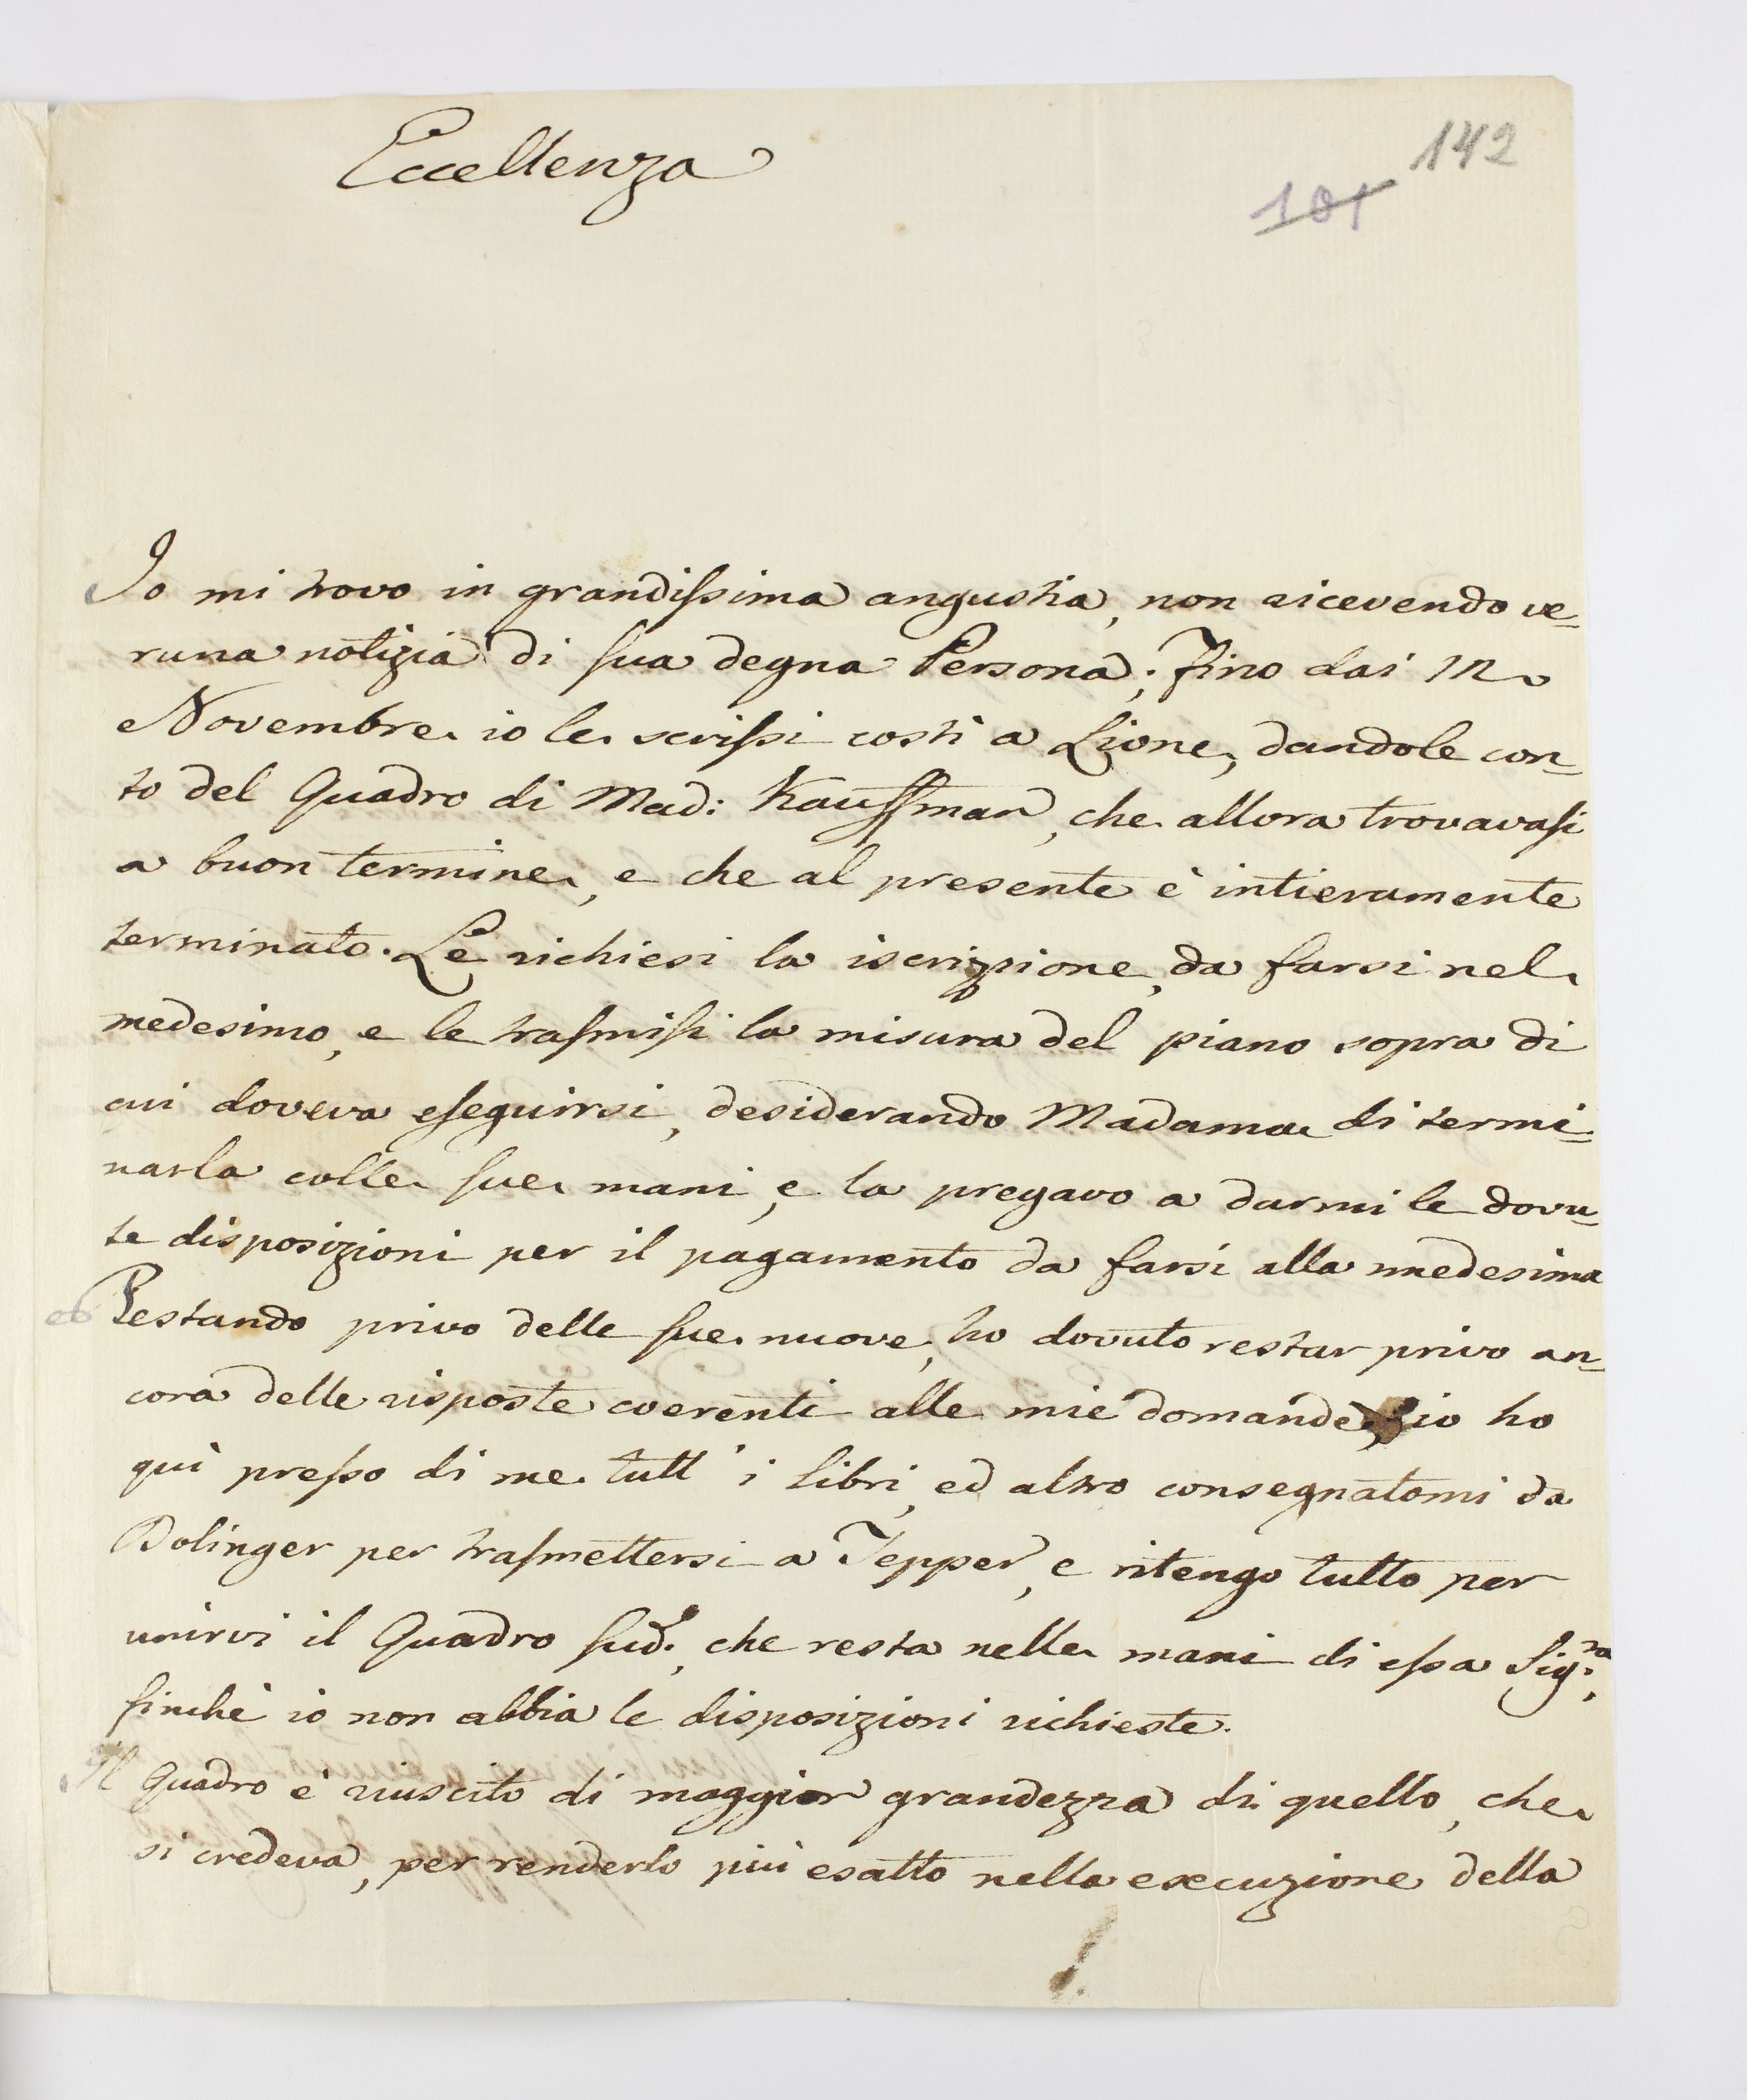 Eccellenza
142
101
Io mi trovo in grandissima angustia, non ricevendo ve=
runa notizia di sua degna Persona; fino dai 12
Novembre io le scrissi costì a Lione, dandole con=
to del Quadro di Mad: Kauffman, che allora trovavasi
a buon termine, e che al presente è intieramente
terminato. Le richiesi la iscrizzione, da farsi nel
medesimo, e le trasmisi la misura del piano sopra di
cui doveva eseguirsi, desiderando Madama di termi=
narla colle sue mani, e la pregavo a darmi le dovu=
te disposizioni per il pagamento da farsi alla medesima
Restando privo delle sue nuove, ho dovuto restar privo an=
cora delle risposte coerenti alle mie domande; io ho
quì presso di me tutt' i libri, ed altro consegnatomi da
Dolinger per trasmettersi a Tepper, e ritengo tutto per
unirvi il Quadro sud.º, che resta nelle mani di essa Sig.ra,
finchè io non abbia le disposizioni richieste.
Il Quadro è riuscito di maggior grandezza di quello, che
si credeva, per renderlo più esatto nella esecuzione della